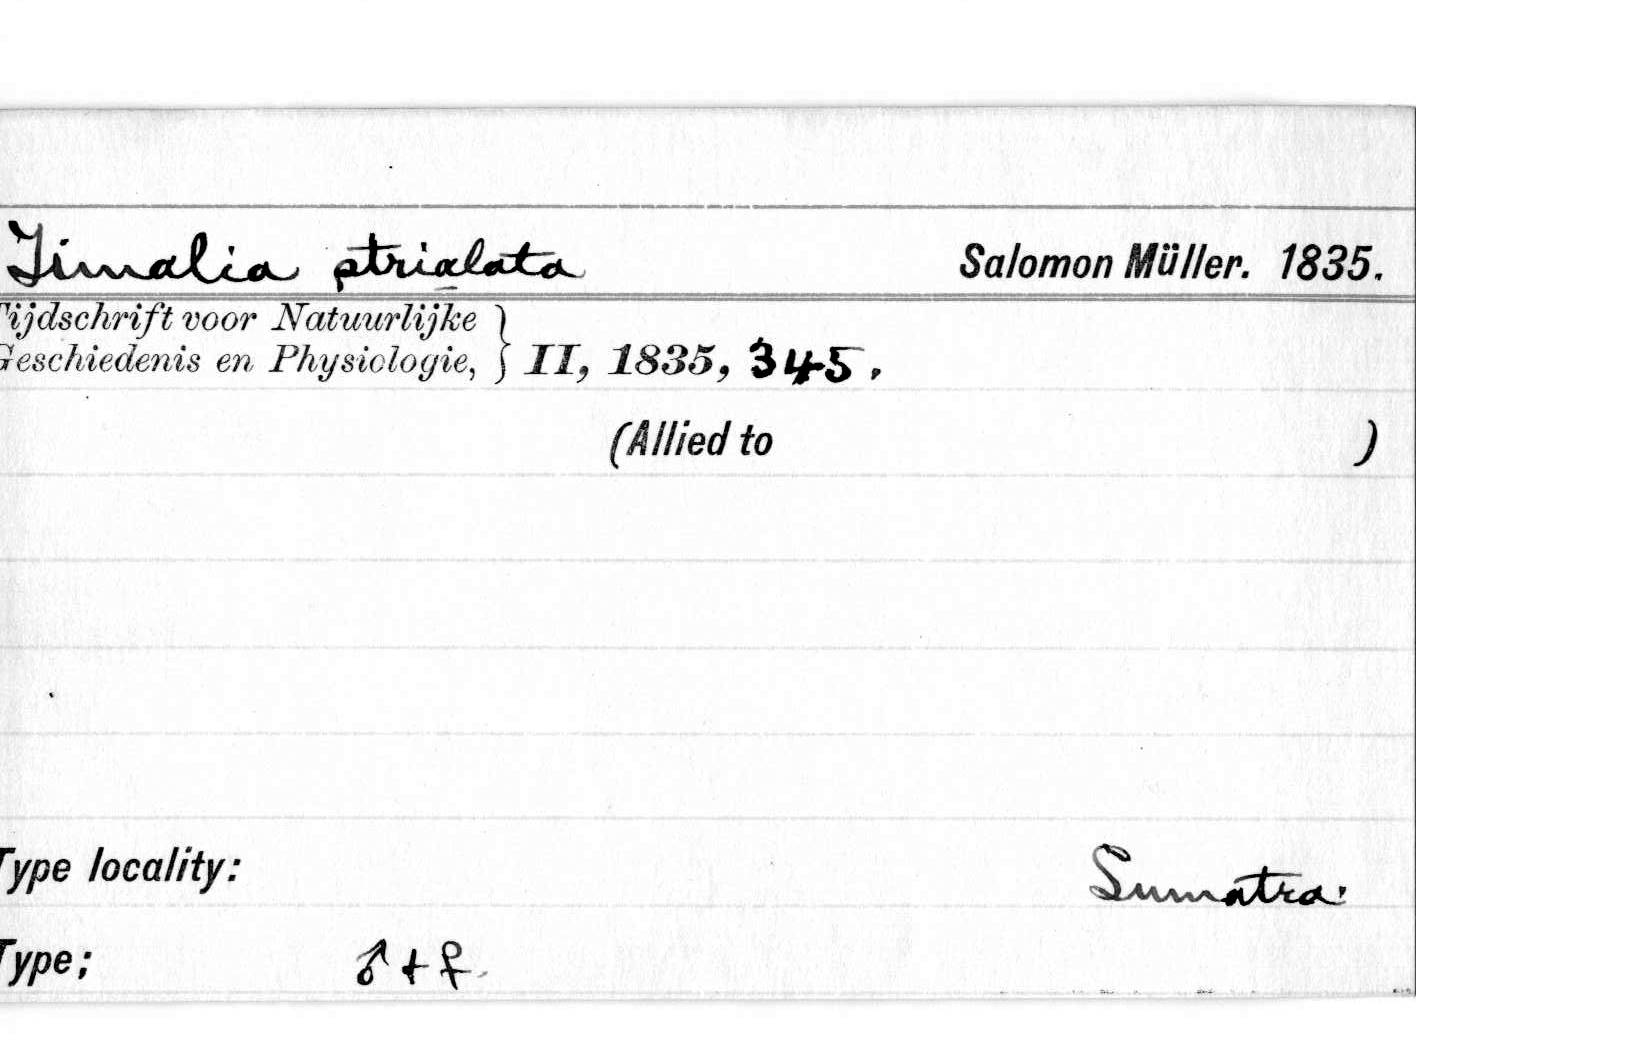 Timalia strialata Salomon Müller. 1835.
Tijdschrift voor Natuurlijke }
Geschiedenis en Physiologie, } II, 1835, 345.
(Allied to )
Type locality: Sumatra.
Type; ♂ + ♀.